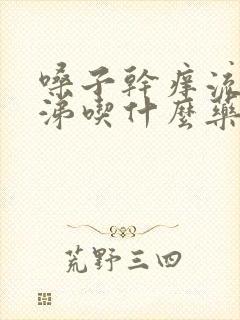 嗓子幹癢流
涕喫什麼藥
荒野三四